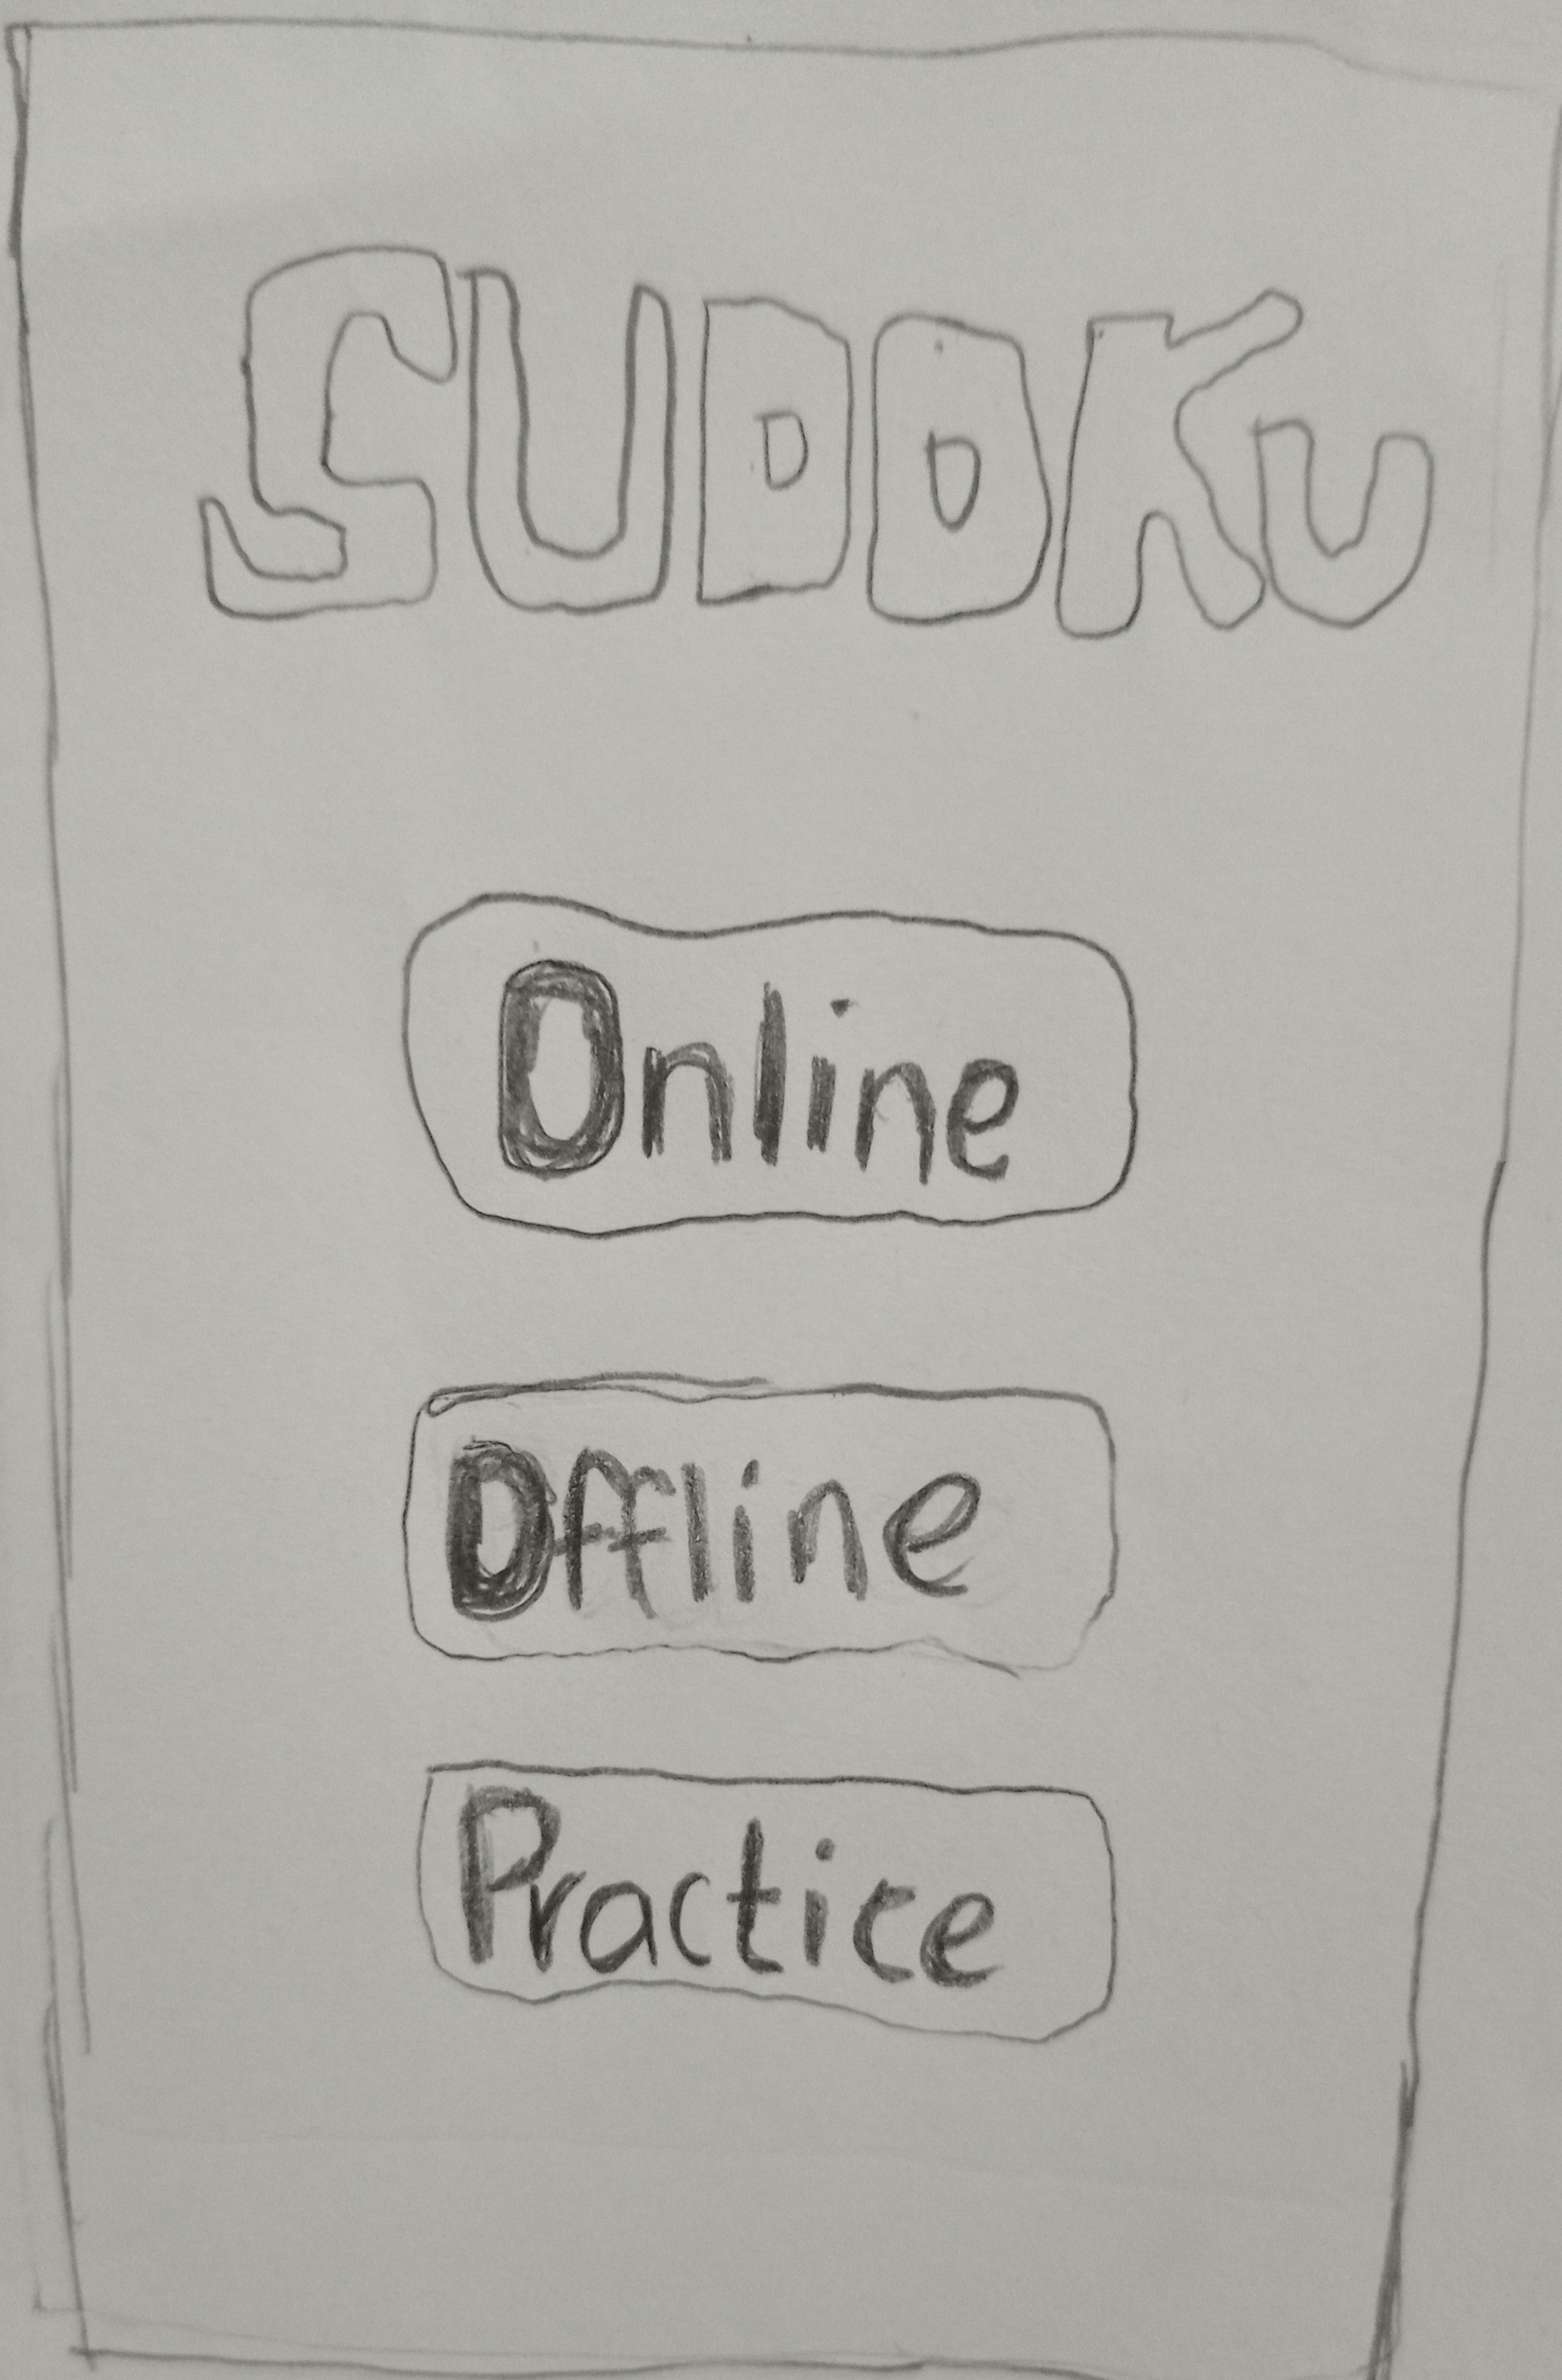 SUDOKu
Online
Offline
Practice